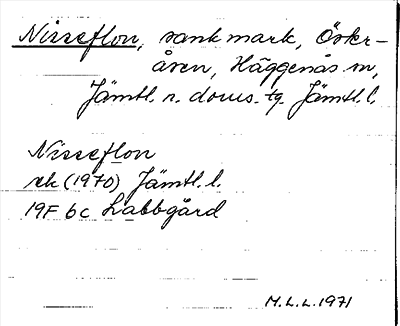 Nisseflon, sank mark, Öster-
åsen, Häggenås sn,
Jämtl. n. doms. tg. Jämtl. l.
Nisseflon
ek (1970) Jämtl. l.
19F 6c Labbgård
M.L.L. 1971